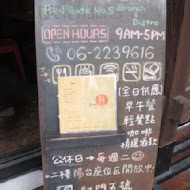 Red Gate No.5 Brunch
Bistro
OPEN HOURS 9AM-5PM
06-2239616
[全日供應]
早午餐
輕餐點
咖啡
精釀酒飲
公休日→每週二
二樓陽台座位區開放中
紅門五號